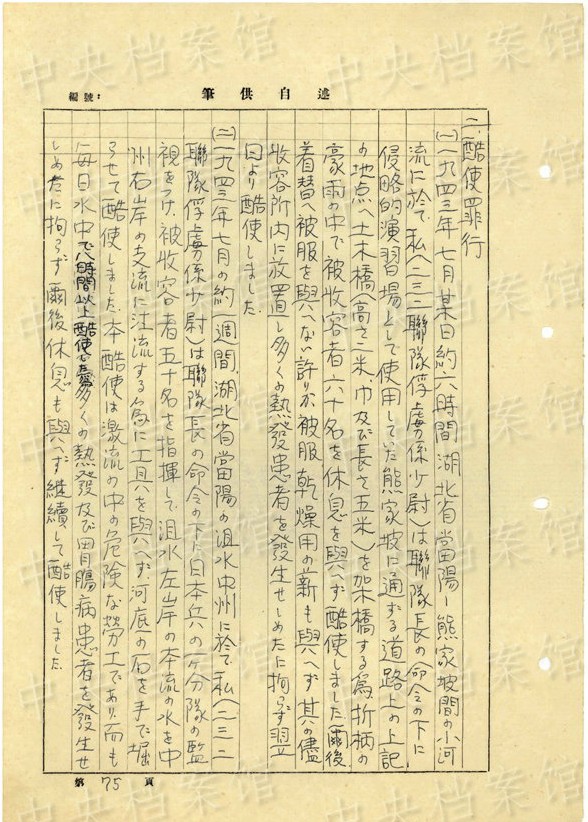 中央档案馆
編號:
筆供白述
二、酷使罪行
(一)一九四三年七月某日約六時間湖北省當陽—熊家坡間の小河
流に於て、私(二三二聯隊俘虜係少尉)は聯隊長の命令の下に
侵略的演習場として使用していた熊家坡に通ずる道路上の上記
の地点へ土木橋(高さ二米、巾及び長さ五米)を架橋する爲折柄の
豪雨の中で被收容者六十名を休息を與へず酷使しました。爾後
着替へ被服を與へない許りか被服乾燥用の薪も與へず其の儘
收容所内に放置し多くの熱發患者を發生せしめたに拘らず翌
日より酷使しました。
(二)一九四三年七月の約一週間、湖北省當陽の沮水中州に於て、私(二三二
聯隊俘虜係少尉)は聯隊長の命令の下に日本兵の一ヶ分隊の監
視をつけ、被收容者五十名を指揮して沮水左岸の本流の水を中
州右岸の支流に注流する爲に工具を與へず、河底の石を手で堀
らせて酷使しました。本酷使は激流の中の危険な勞工であり、而も
毎日水中で八時間以上酷使し爲多くの熱發及び胃腸病患者を發生せ
しめたに拘らず爾後休息も與へず継續して酷使しました。
第75頁